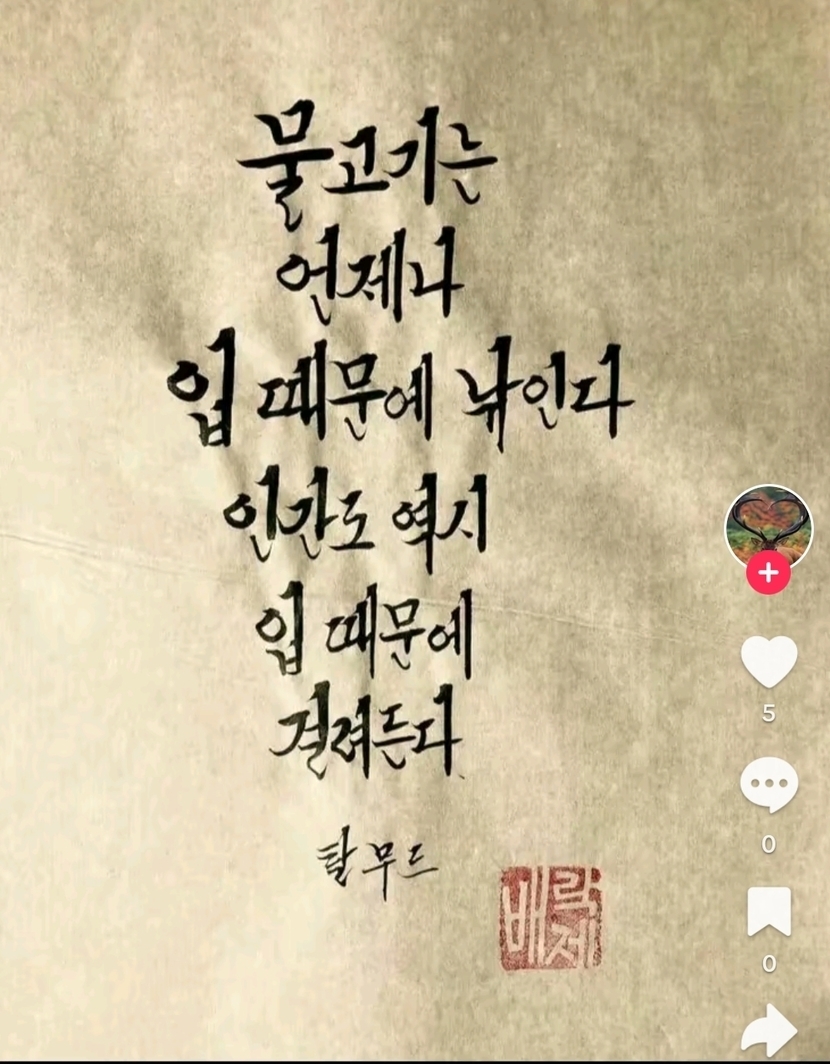 물고기는
언제나
입 때문에 낚인다
인간도 역시
입 때문에
걸려든다.
탈무드
락
배
제
5
0
0